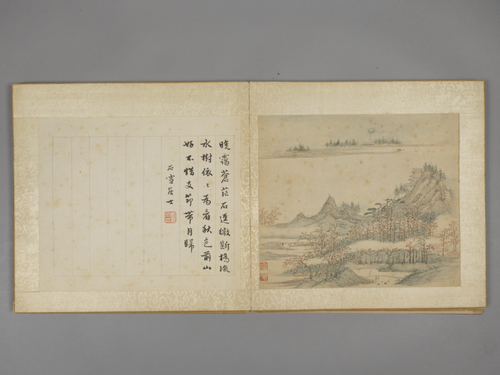 靄蒼茫石逕微斷橋流
水樹依〻為看秋色前山
好不惜支筇帶月歸
石雪居士